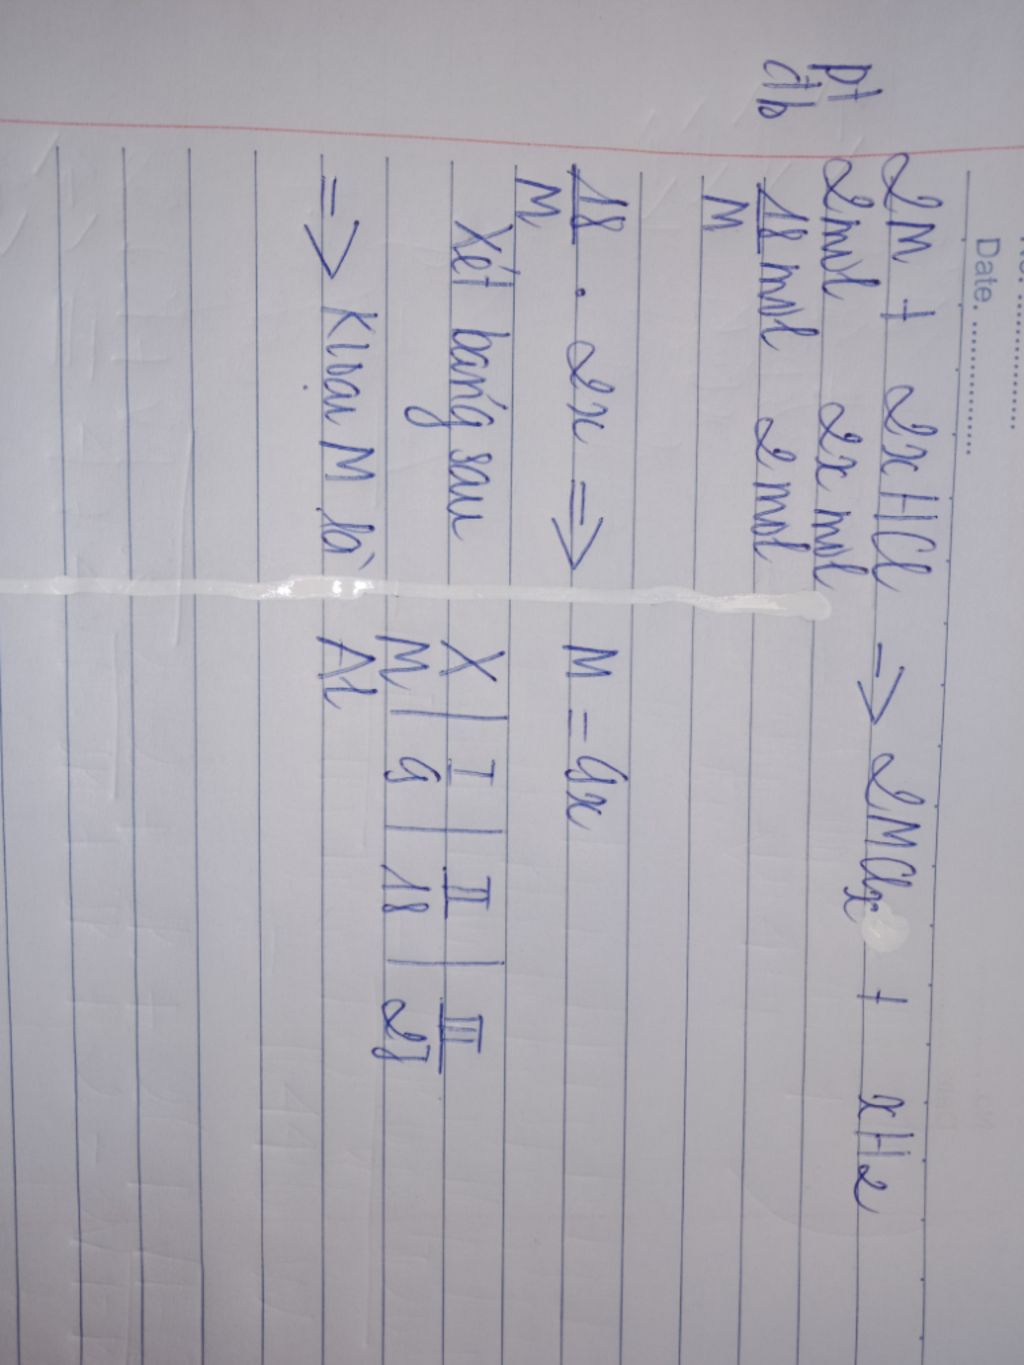 Date. ................
2M + 2xHCl => 2MClx + xH2
pt 2mol 2x mol
đb 18/M mol 2mol
18/M . 2x => M = 9x
Xét bảng sau
X | I | II | III
M | 9 | 18 | 27
=> Kloại M là Al